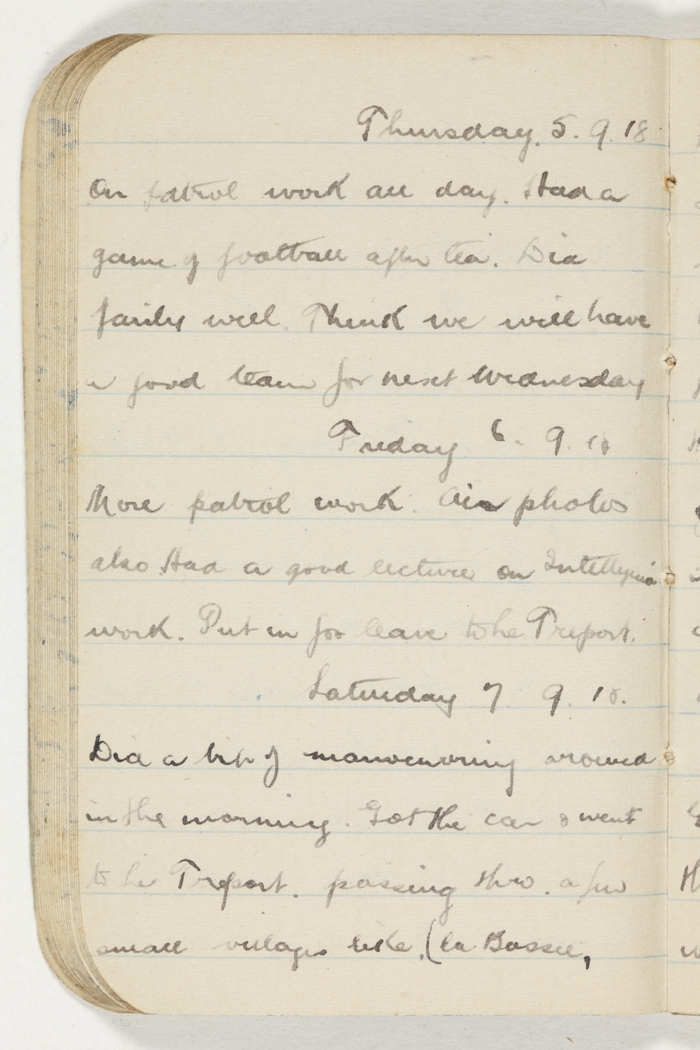 Thursday. 5. 9. 18
On patrol work all day. Had a
game of football after tea. Did
fairly well. Think we will have
a good team for next Wednesday
Friday 6. 9. 18
More patrol work. Air photos
also. Had a good lecture on
work. Put in for leave to he Treport.
Saturday 7 9. 18.
Did a bit of manoeuvring around
in the morning. Got the car & went
to he Treport. passing thro. a few
small villages like (la Bassee,